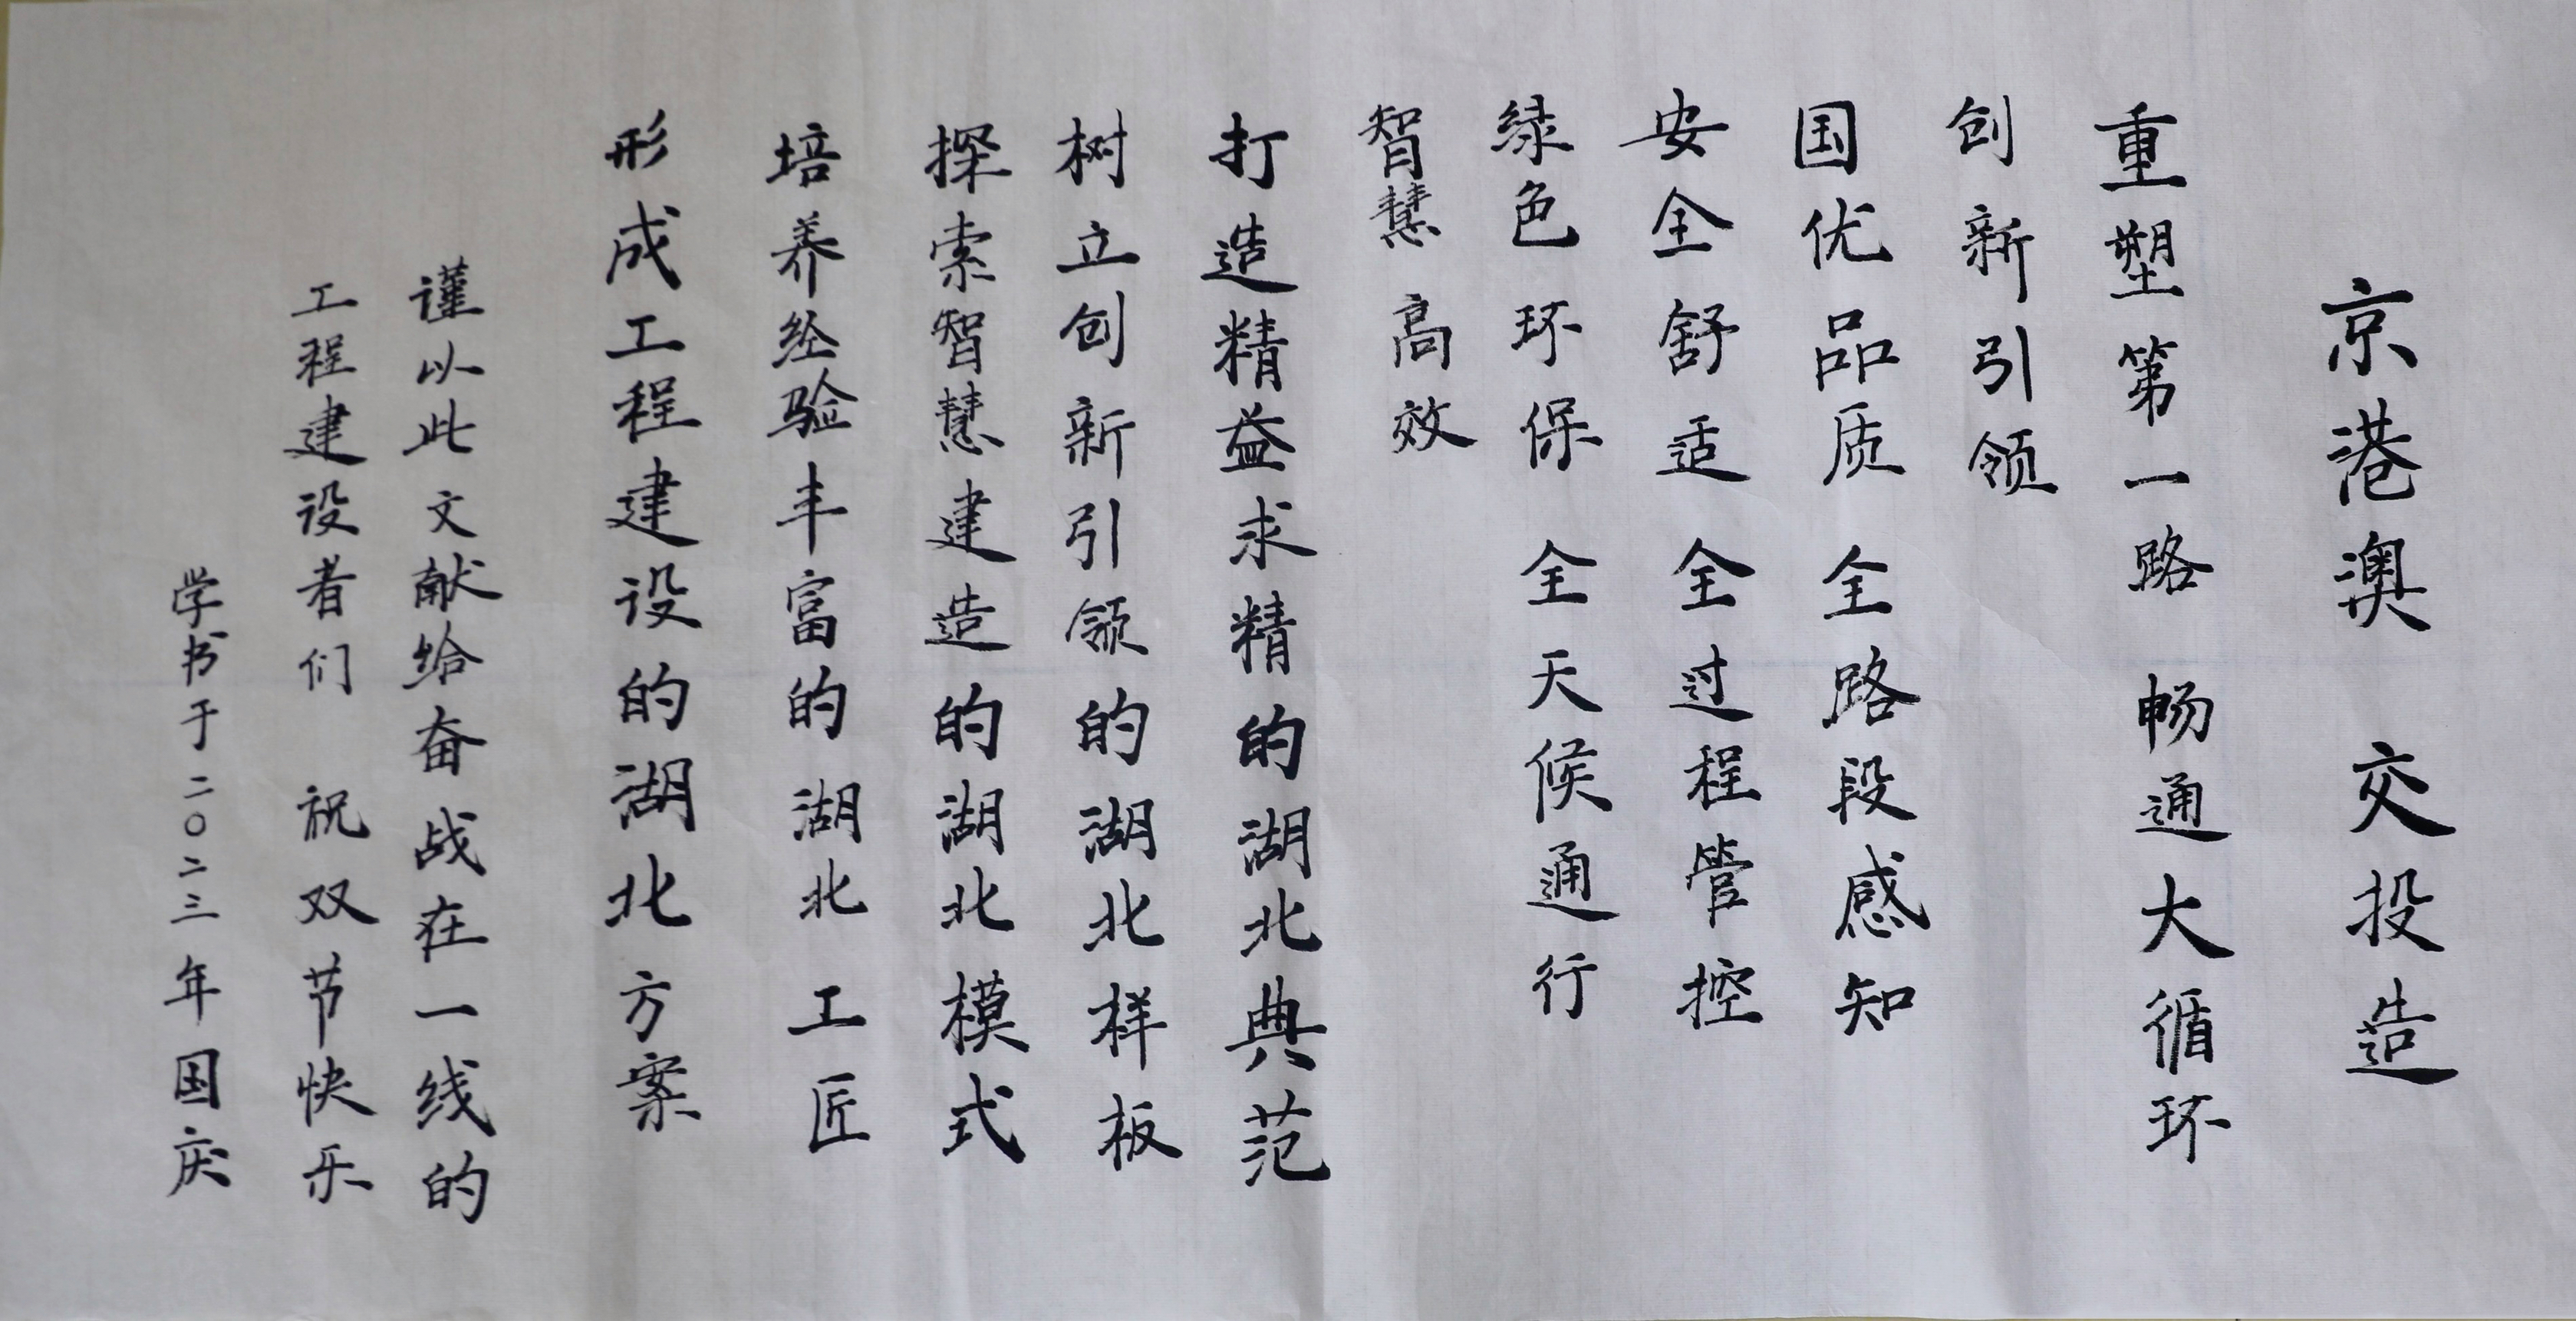 京港澳 交投造
重塑第一路 畅通大循环
创新引领
国优品质 全路段感知
安全舒适 全过程管控
绿色环保 全天候通行
智慧高效
打造精益求精的湖北典范
树立创新引领的湖北样板
探索智慧建造的湖北模式
培养经验丰富的湖北工匠
形成工程建设的湖北方案
谨以此文献给奋战在一线的
工程建设者们 祝双节快乐
学书于二〇二三年国庆